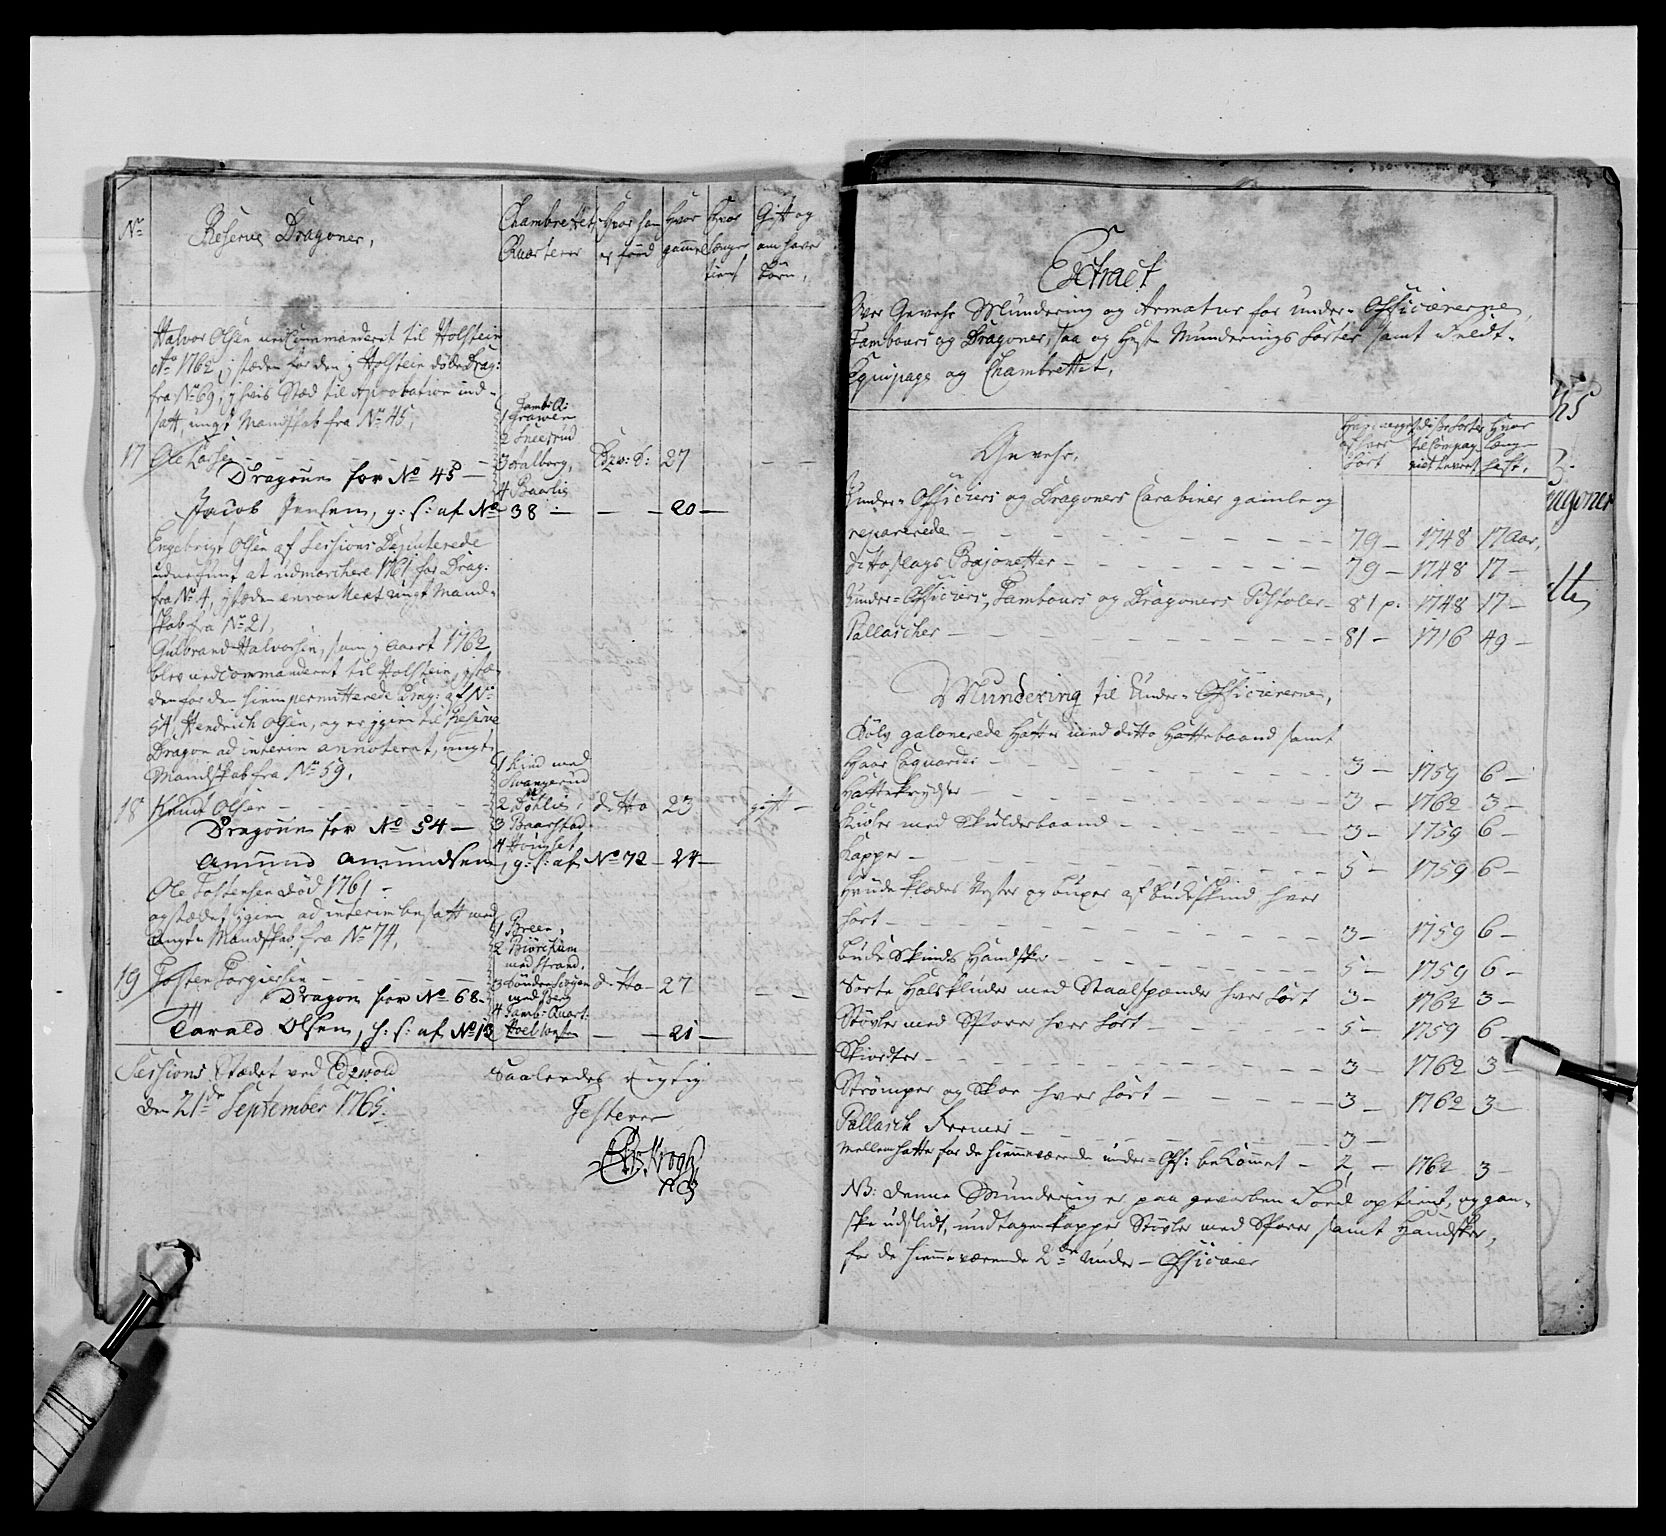 No
Reserve Dragoner,
Chambrettets
Quarterer
Hvor han
er fød
Hvor
gammel
Hvor
længe
tient
Gift og
om haver
Børn,
Halvor Olsen udCommanderet til Holstein
Ao 1762, i stæden for den i Holstein døde Drag:
fra No 69, i hvis Stæd til Aprobation ind-
satt, ungt Mandskab fra No 45,
17 Ole Larsen
Tamb: Q:
1 Grawen
2 Sneesrud
3 Aalborg,
4 Baarlie
27
Dragoun for No 45 —
Jacob Jensen, g: s: af No 38 — 20 —
Engebrigt Olsen af Sessions Deputerede
udnefunt at udmarchere 1761 for Drag:
fra No 4, i stæden enrouleret ungt Mand-
skab fra No 21,
Gulbrand Halvorsen, som i Aaret 1762
blev udcommanderet til Holstein, i stæ-
den for den hiempermitterede Drag: af No
54, Hendrich Olsen, og er igien til Reserve
Dragon ad interim annoteret, ungt
Mandskab fra No 59,
18 Knud Olsen
1 Lind med
Svangerud
2 Døhlie,
3 Baarstad
4 Houglet
ditto 23 gift —
Dragoun for No 54 —
Amund Amundsen, g: s: af No 72 — 24 —
Ole Tostensen død 1761 —
og stædet igien ad interim besatt med
ungt Mandskab fra No 74,
19 Tosten Torgiersen
1 Breen,
2 Biørchum
med strand,
med Berg
4 Tamb: Quart:
ditto 27
Dragon for No 68 —
Tarald Olsen, h: s: af No 13 — 21 —
Sessions Stædet ved Edzwold
den 21de September 1765.
Saaledes rigtig
Testerer
Krogh
Extract
Over Gevehr Mundering og Armatur for Under-Officiererne,
Tambours og Dragoner, saa og Heste Munderings Sorter samt Feldt-
Equipage og Chambrettet,
Gevehr,
Hvor
længe
haft,
Under-Officiers og Dragoners Carabiner gamle og
reparerede — 79 — 1748 17 Aar,
ditto slags Bajonetter — 79 — 1748 17 —
Under-Officiers, Tambours og Dragoners Pistoler — 81 p: 1748 17 —
Pallascher — 81 — 1716 49 —
Mundering til Under-Officiererne,
Sølv galonerede Hatte med ditto Hattebaand samt
Haar Coquarder — 3 — 1759 6 —
Hattekrydser — 3 — 1762 3 —
Kioler med Skulderbaand — 3 — 1759 6 —
Kapper — 5 — 1759 6 —
Hvide klædes Vester og Buxer af Bukskind hver
sort — 3 — 1759 6 —
Bukeskinds Handsker — 5 — 1759 6 —
Sorte Halsklude med Staalspænder hver sort 3 — 1762 3 —
Støvler med Sporer hver sort — 5 — 1759 6 —
Skiorter — 3 — 1762 3 —
Strømper og Skoe hver sort — 3 — 1762 3 —
Pallasch Remer — 3 —
Mellemhatte for de hiemmeværende under-Off: bekommet — 2, — 1762 3 —
NB: denne Mundering er paa gevorben Foed optient, og gan-
ske udslidt, undtagen Kapper Støvler med Sporer samt Handsker,
for de hiemmeværende 2de Under-Officierer